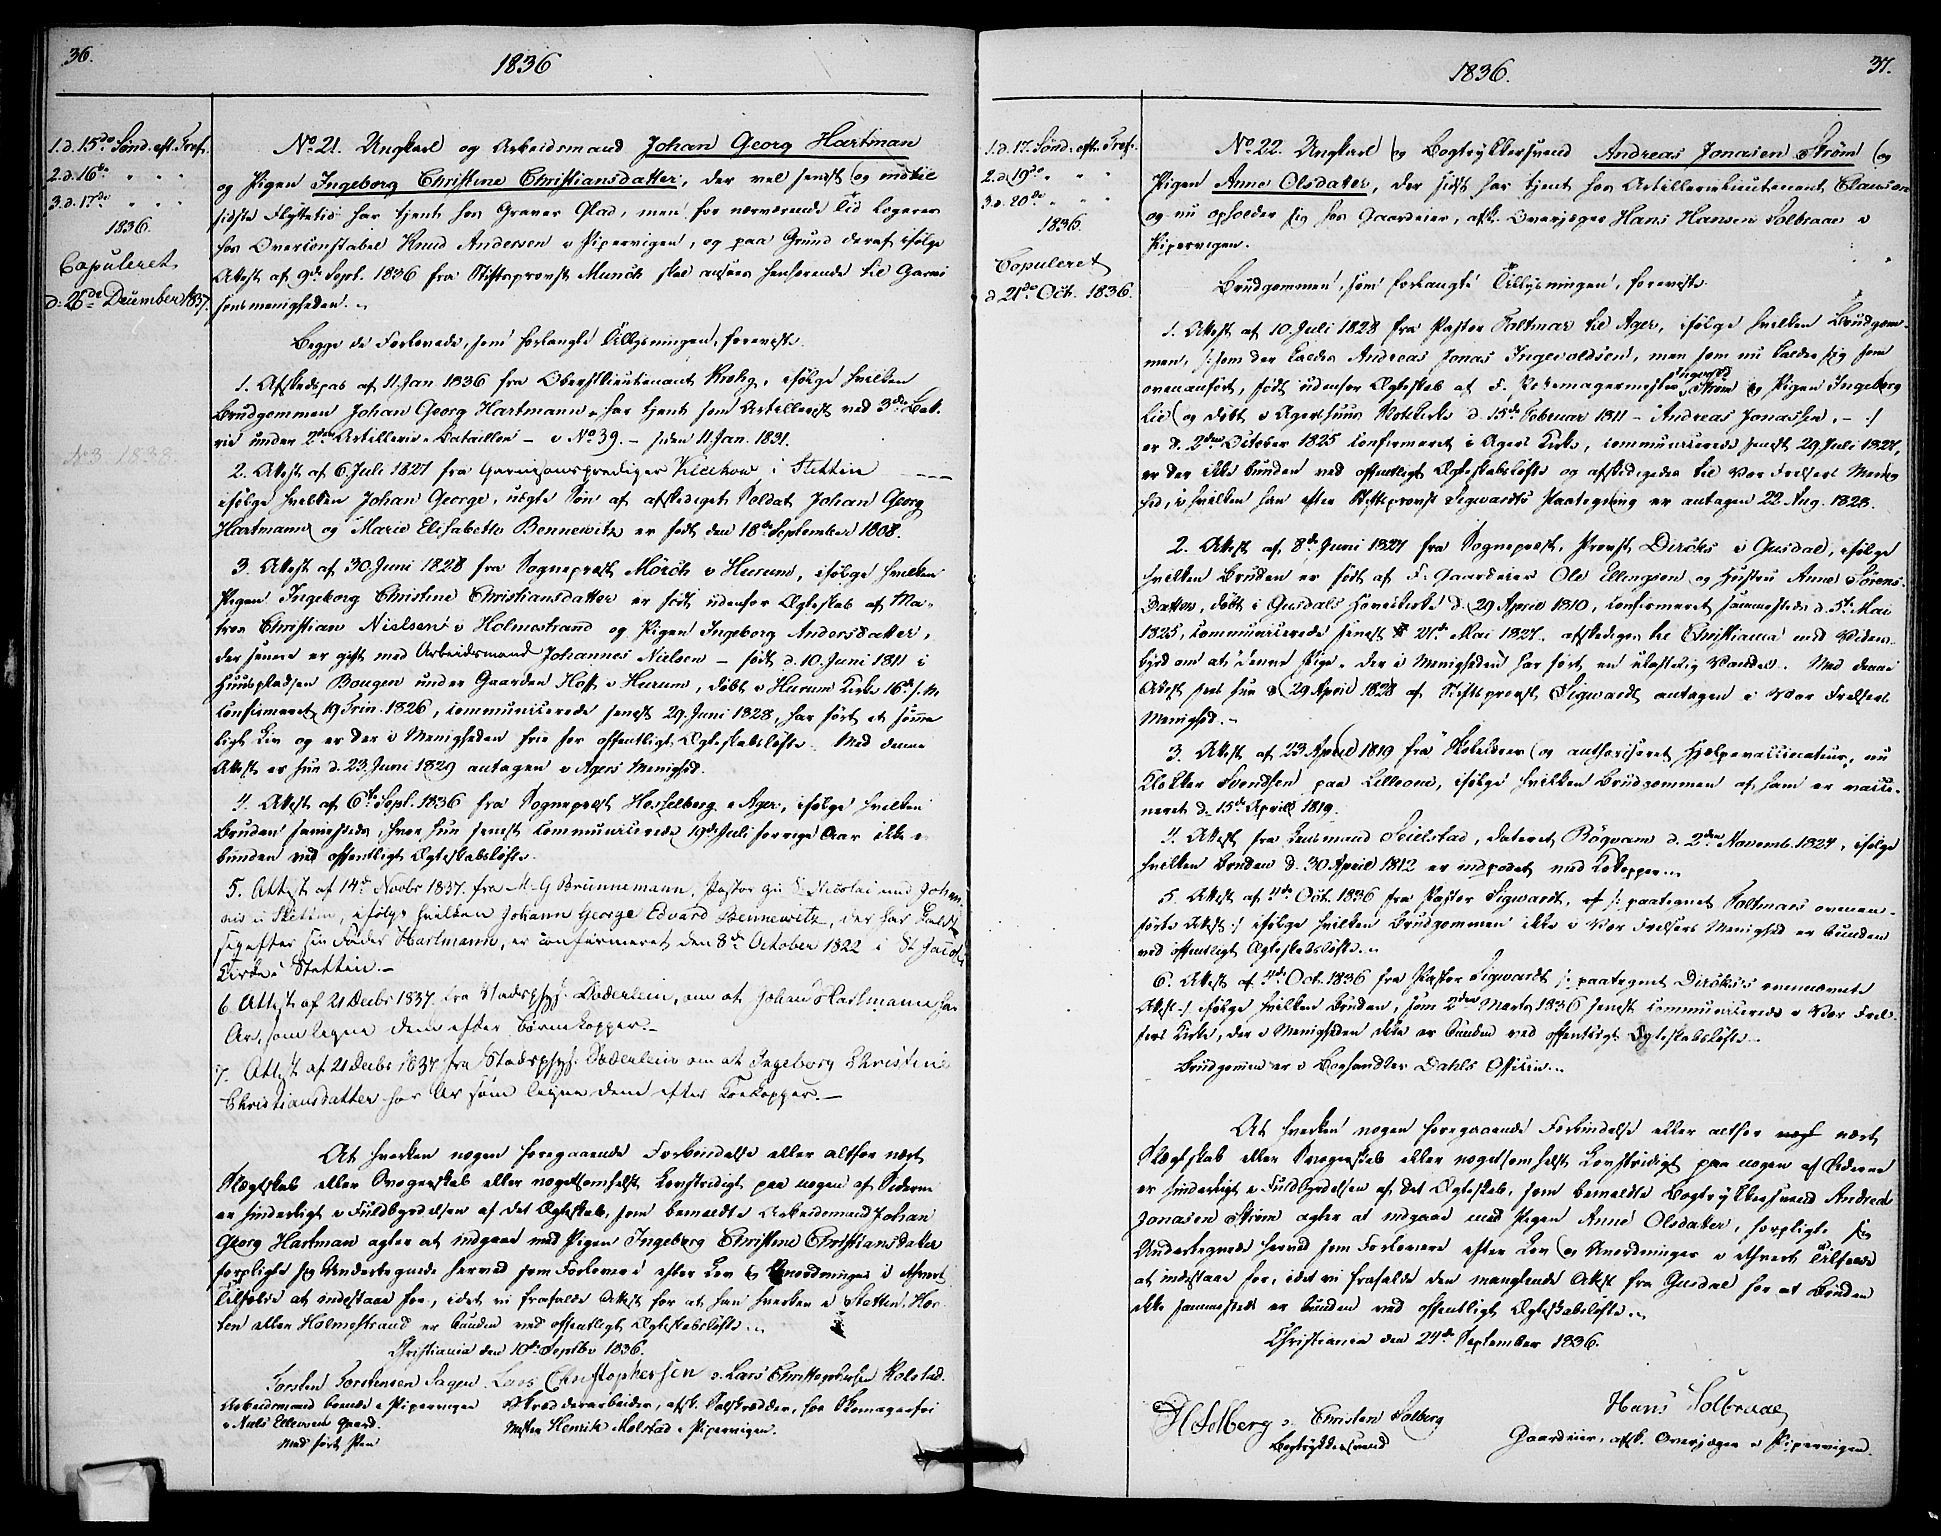 36.
1836
1. d. 15de Sønd. eft. Tref.
2. d. 16de " " "
3. d. 17de " " "
1836.
Copuleret
d: 26de December 1837.
No 3 1838.
No 21. Ungkarl og Arbeidsmand Johan Georg Hartman
og Pigen Ingeborg Christine Christiansdatter, der vel senest og indtil
sidste Flyttetid har tjent hos Graver Glad, men for nærværende Tid logerer
hos Overconstabel Knud Andersen i Pipervigen, og paa Grund deraf ifølge
Attest af 9de Sept. 1836 fra Stiftsprovst Munch skal ansees henhørende til Garni
sonsmenigheden. -
Begge de Forlovede, som forlangte Tillysningen, foreviste.
1. Afskedspas af 11. Jan 1836 fra Oberstlieutenant Krohg, ifølge hvilken
Brudgommen Johan Georg Hartmann har tjent som Artillerist ved 3die Bat.
rie under 2den Artillerie-Bataillon - i No 39. - siden 11 Jan. 1831.
2. Attest af 6. Juli 1827 fra Garnisonsprediger i Stettin
ifølge hvilken Johan George, uægte Søn af afskediget Soldat Johan Georg
Hartmann og Marie Elisabeth Bennewitz er født den 18de September 1808.
3. Attest af 30. Juni 1828 fra Sognepræst Mörch i Hurum, ifølge hvilken
Pigen Ingeborg Christine Christiansdatter er født udenfor Ægteskab af Ma-
tros Christian Nielsen i Holmestrand og Pigen Ingeborg Andersdatter,
der senere er gift med Arbeidsmand Johannes Nielsen - født d. 10. Juni 1811 i
Huuspladsen Bougen under Gaarden Hoff i Hurum, døbt i Hurum Kirke 16de s. M
confirmeret 19 Trin. 1826, communicerede senest 29. Juni 1828, har ført et sømme
ligt Liv og er der i Menigheden frie for offentligt Ægteskabsløfte. Med denne
Attest er hun d. 23. Juni 1829 antagen i Agers Menighed.
4. Attest af 6te Sept. 1836 fra Sognepræst Hesselberg i Ager, ifølge hvilken
Bruden sammesteds, hvor hun senest communicerede 19de Juli forrige Aar ikke er
bunden ved offentligt Ægteskabsløfte.
5. Attest af 14de Novbr 1837. fra M. G Brunnemann, Pastor zu St Nicolai und Johan
nis i Stettin, ifølge hvilken Johann George Edvard Bennewitz, der har kaldt
sig efter sin Fader Hartmann, er confirmeret den 8de October 1822 i St Jacobi
Kirke i Stettin. -
6. Attest af 21 Decbr 1837. fra Stadsphys. Døderlein, om at Johan Hartmann har
Ar, som ligne dem efter Børnekopper. -
7. Attest af 21 Decbr 1837 fra Stadsphys. Døderlein om at Ingeborg Christine
Christiansdatter har Ar som ligne dem efter Koekopper. -
At hverken nogen foregaaende Forbindelse eller altfor nært
Slægtskab eller Svogerskab eller nogetsomhelst Lovstridigt paa nogen af Siderne
er hinderligt i Fuldbyrdelsen af det Ægteskab, som bemeldte Arbeidsmand Johan
Georg Hartman agter at indgaae med Pigen Ingeborg Christine Christiansdatter
forpligte sig Undertegnede herved som Forlovere efter Lov og Anordninger i ethvert
Tilfælde at indestaae for, idet vi frafalde Attest for at han hverken i Stettin, Hor
ten eller Holmestrand er bunden ved offentligt Ægteskabsløfte.
Christiania den 10de Septbr 1836.
Torsten Torstensen Sagen Lars Christophersen o: Lars Christophersen Kolstad.
Arbeidsmand boende i Pipervigen Skrædderarbeider, afsk. Soldat, hos Skomager
i Niels Ellevsens Gaard Mester Henrik Molstad i Pipervigen.
med ført Pen
1836.
37.
1. d. 17. Sønd. eft. Tref.
2. d 19de " "
3. d. 20de " "
1836
Copuleret
d 21de Oct. 1836.
No 22. Ungkarl og Bogtrykkersvend Andreas Jonasen Strøm og
Pigen Anne Olsdater, der sidst har tjent hos Artillerielieutenant Clauson
og nu opholder sig hos Gaardeier, afsk. Overjæger Hans Hansen Solbraae i
Pipervigen.
Brudgommen, som forlangte Tillysningen, foreviste.
1. Attest af 10. Juli 1828 fra Pastor Foltmar til Ager, ifølge hvilken Brudgom-
men, /: som der kaldes Andreas Jonas Ingevoldsen, men som nu kalder sig som
ovenanført, født udenfor Ægteskab af F. Ingevold Strøm og Pigen Ingeborg
Lie og døbt i Agershuus Slotskirke d. 15de Februar 1811 - Andreas Jonassen, - :/
er d. 2den October 1825 confirmeret i Agers Kirke, communicerede senest 29 Juli 1827,
er der ikke bunden ved offentligt Ægteskabsløfte og afskedigedes til Vor Frelsers Menig
hed, i hvilken han efter Stiftsprovst Sigwardts Paategning er antagen 22. Aug. 1828.
2. Attest af 8de Juni 1827 fra Sognepræst, Provst Dircks i Gusdal, ifølge
hvilken Bruden er født af F. Gaardeier Ole Ellingsen og Hustru Anne Sørens-
datter, døbt i Gusdals Hovedkirke d. 29 April 1810, confirmeret sammesteds d. 5te Mai
1825, communicerede senest 21de Mai 1827. afskediges til Christiania med Vidnes-
byrd om at "denne Pige, der i Menigheden har ført en ulastelig Vandel". Med denne
Attest sees hun d 29 April 1828 af Stiftsprovst Sigwardt antagen i Vor Frelsers
Menighed. -
3. Attest af 23. April 1819 fra Skoleholder og authoriseret Hjælpevaccinateur, nu
Klokker Svendsen paa Lilleøen, ifølge hvilken Brudgommen af ham er vacci-
neret d. 15de April 1819.
4. Attest fra Lensmand Seielstad, dateret Bøgvam d. 2den Novemb. 1824, ifølge
hvilken Bruden d. 30 April 1812 er indpodet med Kokopper.
5. Attest af 4de Oct. 1836 fra Pastor Sigwardt, /: paategnet Foltmars ovenan-
førte Attest :/ ifølge hvilken Brudgommen ikke i Vor Frelsers Menighed er bunden
ved offentligt Ægteskabsløfte.
6. Attest af 4de Oct. 1836 fra Pastor Sigwardt /: paategnet Dircks's ovennævnte
Attest :/ ifølge hvilken Bruden, som 2den Marts 1836 senest communicerede i Vor Frel-
sers Kirke, der i Menigheden ikke er bunden ved offentligt Ægteskabsløfte.
Brudgommen er i Boghandler Dahls Officin.
At hverken nogen foregaaende Forbindelse eller altfor nært
Slægtskab eller Svogerskab eller nogetsomhelst Lovstridigt paa nogen af Siderne
er hinderligt i Fuldbyrdelsen af det Ægteskab, som bemeldte Bogtrykkersvend Andreas
Jonasen Strøm agter at indgaae med Pigen Anne Olsdater, forpligte sig
Undertegnede herved som Forlovere efter Lov og Anordninger i ethvert Tilfælde
at indestaae for, idet vi frafalde den manglende Attest fra Gusdal for at Bruden
ikke sammesteds er bunden ved offentligt Ægteskabsløfte.
Christiania den 24de September 1836.
HSolberg o: Christen Solberg
Bogtrykkersvend
Hans Solbraae
Gaardeier, afsk. Overjæger i Pipervigen.